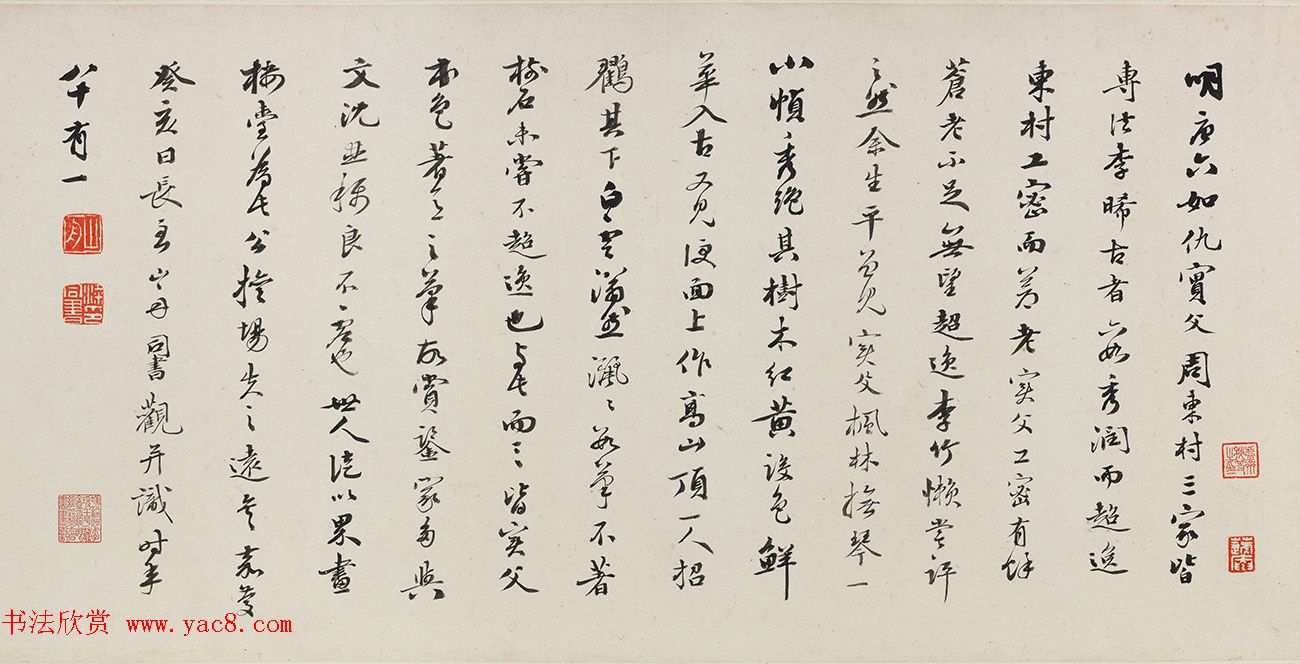 明唐六如仇實父周東村三家皆
專法李晞古者六如秀潤而超逸
東村工密而蒼老實父工密有餘
蒼老不足無望超逸李竹懶嘗評
之然余生平曾見實父楓林撫琴一
小幀秀絶其樹木紅黃設色鮮
華入古又見便面上作高山頂一人招
鶴其下白雲滿 數筆不著
樹石未嘗不超逸也與此而三皆實父
本色著意之筆故賞鑒家多與
文沈並稱良不虛也世人徒以界畫
樓臺為此公擅場失之遠矣嘉慶
癸亥日長至 同書觀并識時年
八十有一
书法欣赏 www.yac8.com